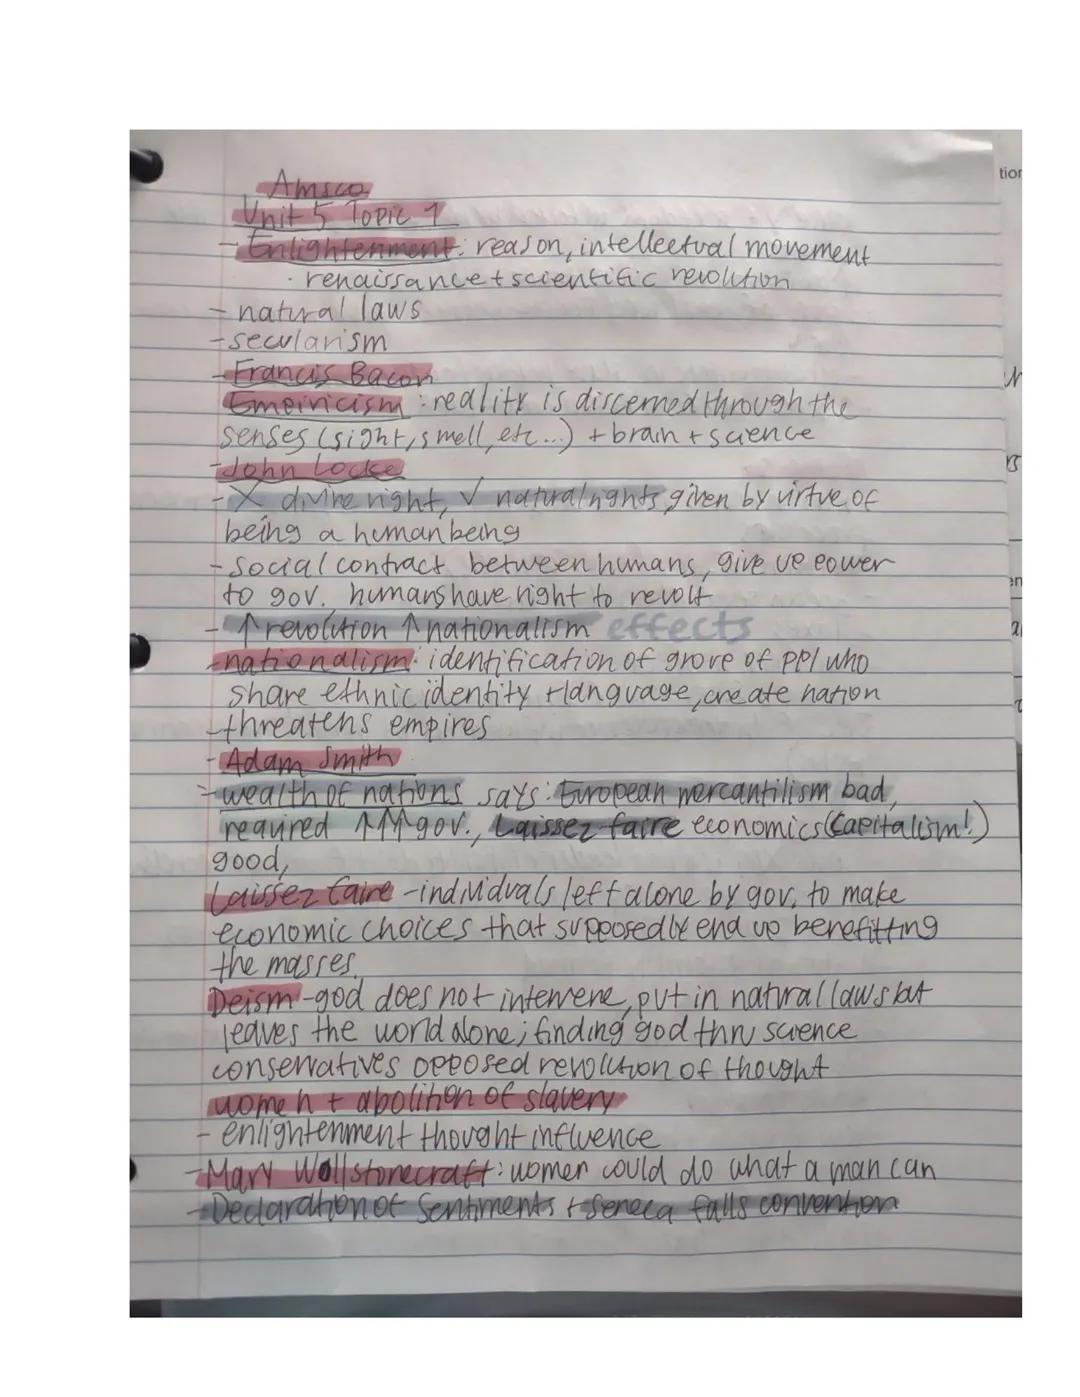 Amsco
Unit 5 Topic 1
- Enlightenment: reason, intellectual movement
· renaissance + scientific revolution
- natural laws
- secularism
- Francis Bacon
Empiricism: reality is discerned through the
senses (sight, smell, etc...) + brain + science
- John Locke
- X divine right, ✓ natural rights given by virtue of
being a human being
- social contract between humans, give up power
to gov. humans have right to revolt
- ↑ revolution ↑ nationalism effects
- nationalism: identification of grove of ppl who
share ethnic identity + language, create nation
- threatens empires
- Adam Smith
- wealth of nations says: European mercantilism bad,
required ↑↑↑ gov., Laissez faire economics (Capitalism!)
good,
Laissez faire - individuals left alone by gov. to make
economic choices that supposedly end up benefitting
the masses.
Deism - god does not intervene, put in natural laws but
leaves the world alone; finding god thru science
conservatives opposed revolution of thought
women + abolition of slavery
- enlightenment thought influence
- Mary Wollstonecraft: women could do what a man can
- Declaration of Sentiments + Seneca falls convention
tion
en